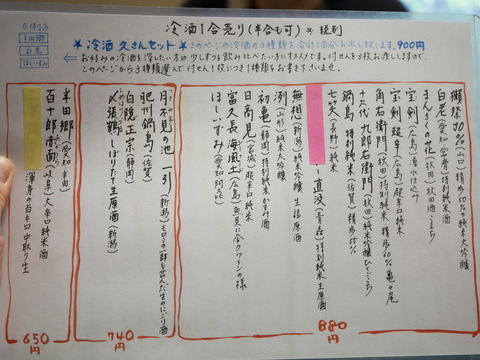 冷酒1合売り(半合も可) ※税別
★冷酒 久さんセット★ このページの冷酒の3種類を合計1合分お出し致します。900円
お好みの冷酒を深したい方や、少しずつを飲み比べたい方にオススメです。付せんを3枚お渡ししますので、
このページから3種類選んで付せん1枚につき1種類をお書き下さいませ。
半田郷
白老
ほしいずみ
獺祭50%(山口)精歩50%の純米大吟醸
白老(愛知 常滑)特別純米酒
まんさくの花(秋田)秋田酒こまち
宝剣(広島)湧水仕込み
宝剣 超辛(広島)超辛口純米
角右衛門(秋田)特別純米 精歩60% 亀の尾
十六代九郎右衛門
鍋島 特別純米(佐賀)精歩55%
七笑(長野)純米
直汲(青森)特別純米生原酒
無想(新潟)純米吟醸 生詰原酒
洌(山形)純米大吟醸
初亀(静岡)特別純米かすみ酒
日高見(宮城)超辛口純米
富久長 海風土(広島)魚貝に合う白ワインの様
ほしいずみ(愛知 阿久比)
880円
月不見の池
肥州 鍋島(佐賀)
白隠正宗(静岡)
〆張鶴 しぼりたて生原酒(新潟)
740円
半田郷(愛知 半田)
百十郎 赤面(岐阜)大辛口純米酒
650円